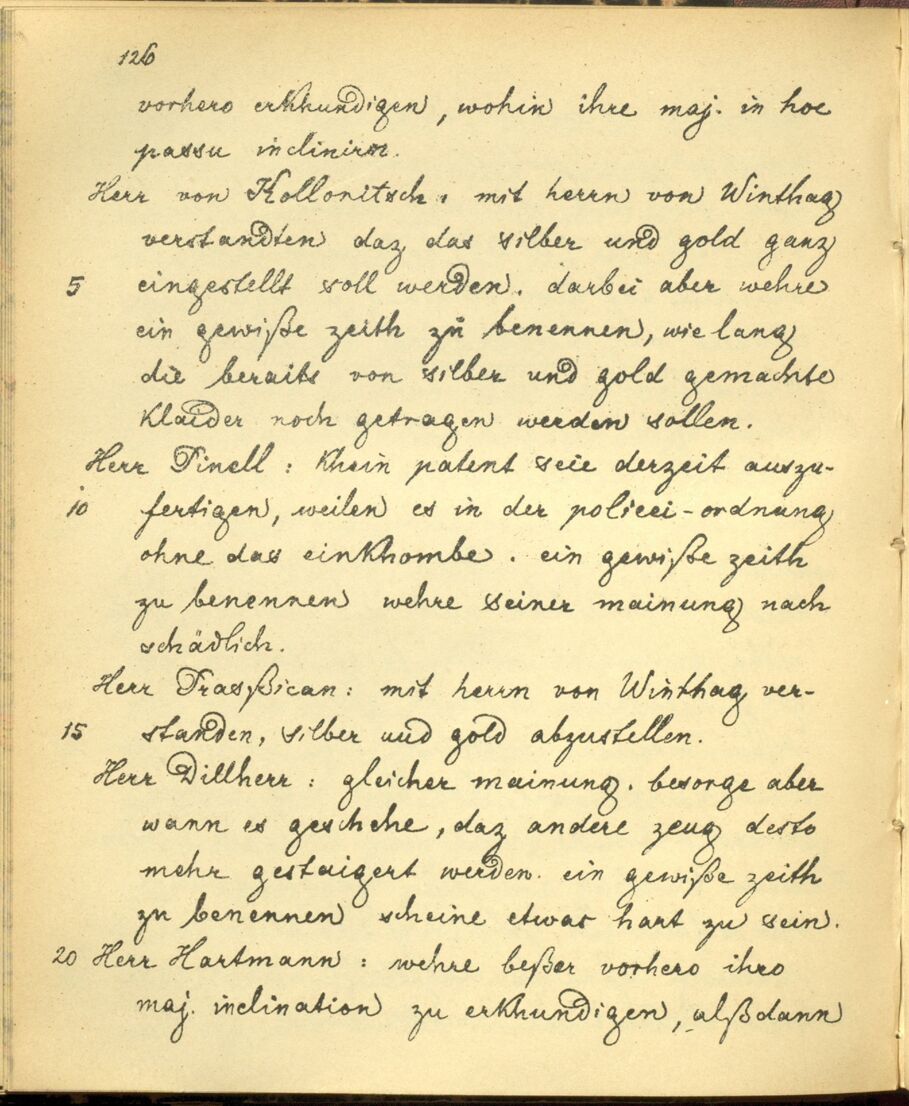 126
vorhero erkhundigen, wohin ihre maj. in hoc
passu inclinirn.
Herr von Kollonitsch: mit herrn von Winthag
verstandten daz das silber und gold ganz
5 eingestellt soll werden. darbei aber wehre
ein gewiße zeith zu benennen, wie lang
die beraits von silber und gold gemachte
Klaider noch getragen werden sollen.
Herr Pinell: Khein patent seie derzeit auszu-
10 fertigen, weilen es in der policei-ordnung
ohne das einkhombe. ein gewiße zeith
zu benennen wehre seiner mainung nach
schädlich.
Herr Traßsican: mit herrn von Winthag ver-
15 standen, silber und gold abzustellen.
Herr Dillherr: gleicher mainung. besorge aber
wann es geschehe, daz andere zeug desto
mehr gestaigert werden. ein gewiße zeith
zu benennen scheine etwas hart zu sein.
20 Herr Hartmann: wehre beßer vorhero ihro
maj. inclination zu erkhundigen, alßdann